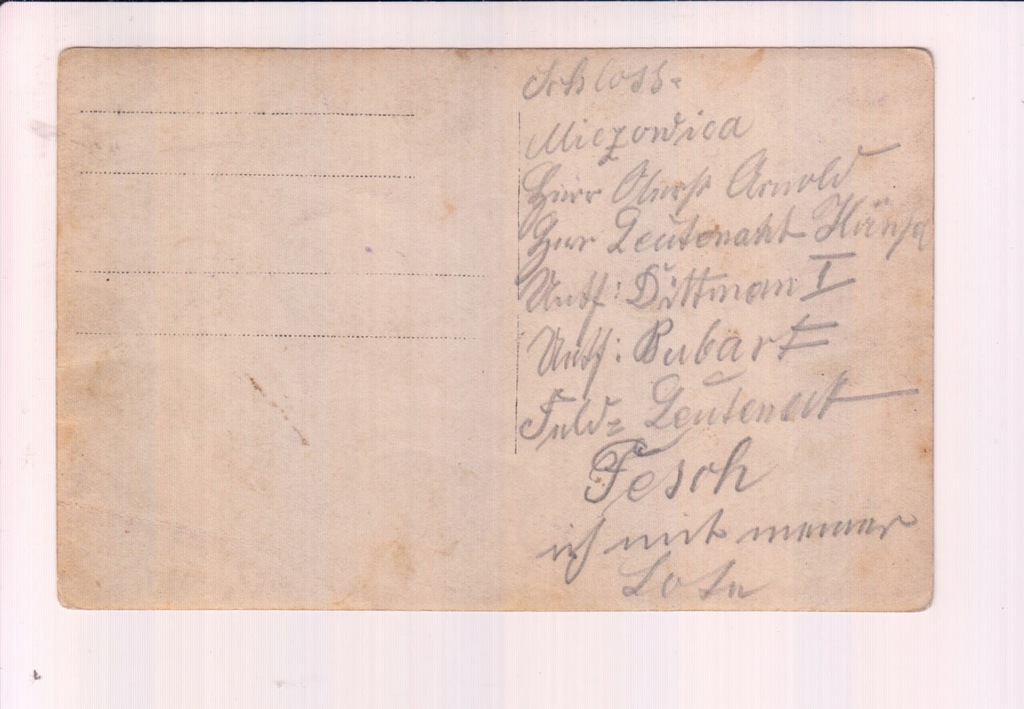 Schloss=
Miczowica
Herr Oberst Arnold
Herr Leutenant
Untf: Dittman I
Untf: Bubart
Feld= Leutenant
Fesch
ich mit meiner